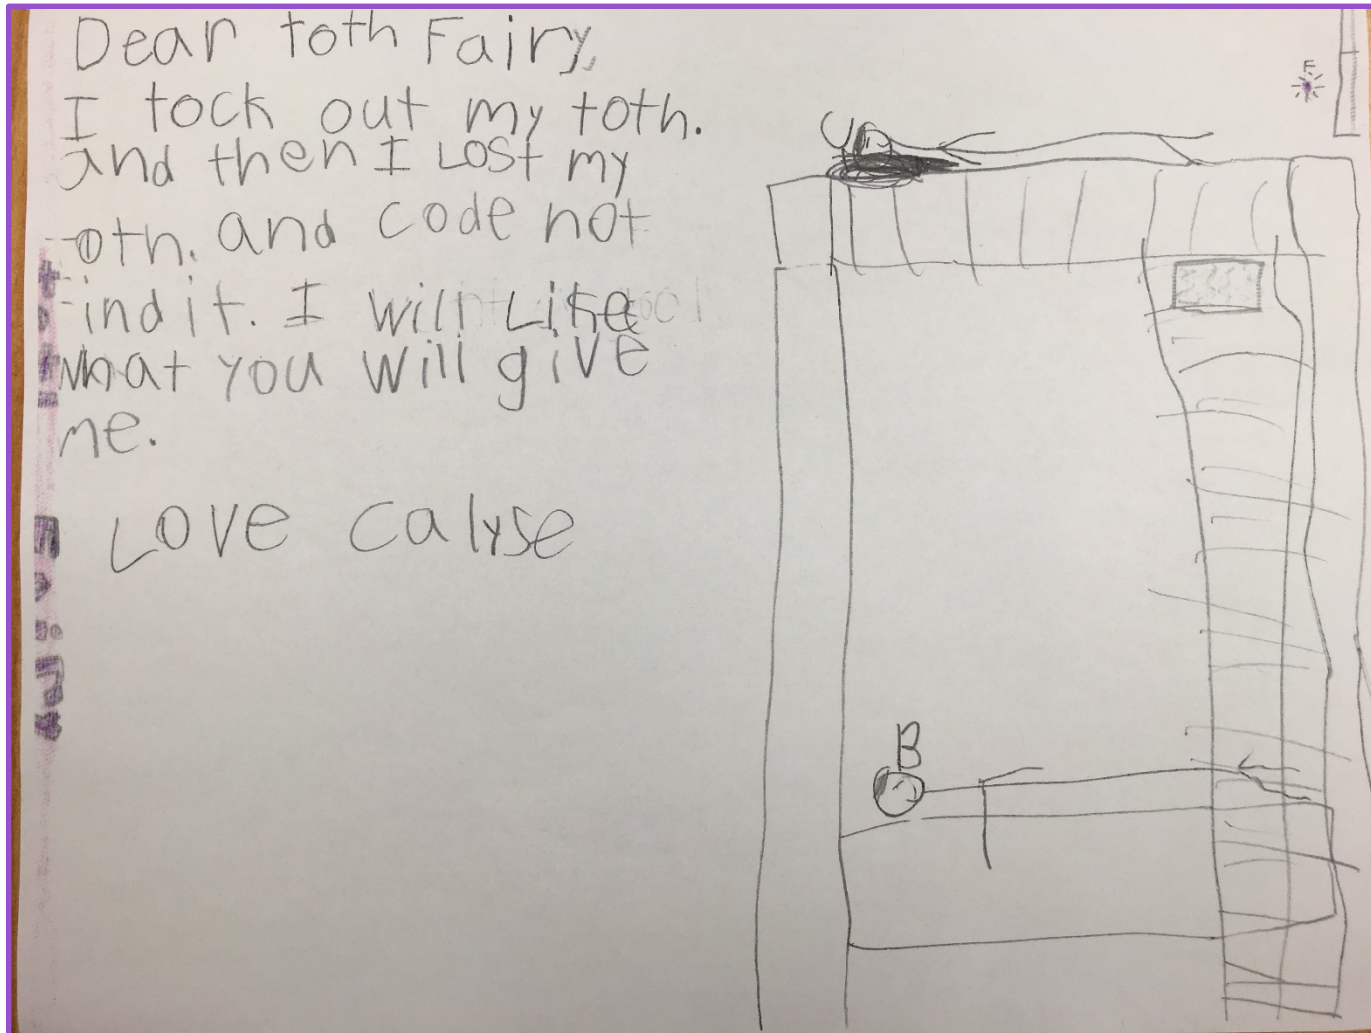 Dear toth Fairy,
I tock out my toth.
and then I Lost my
toth. and code not
find it. I will Like
what you will give
me.
Love Calyse
toth
Fairy
C
B
F